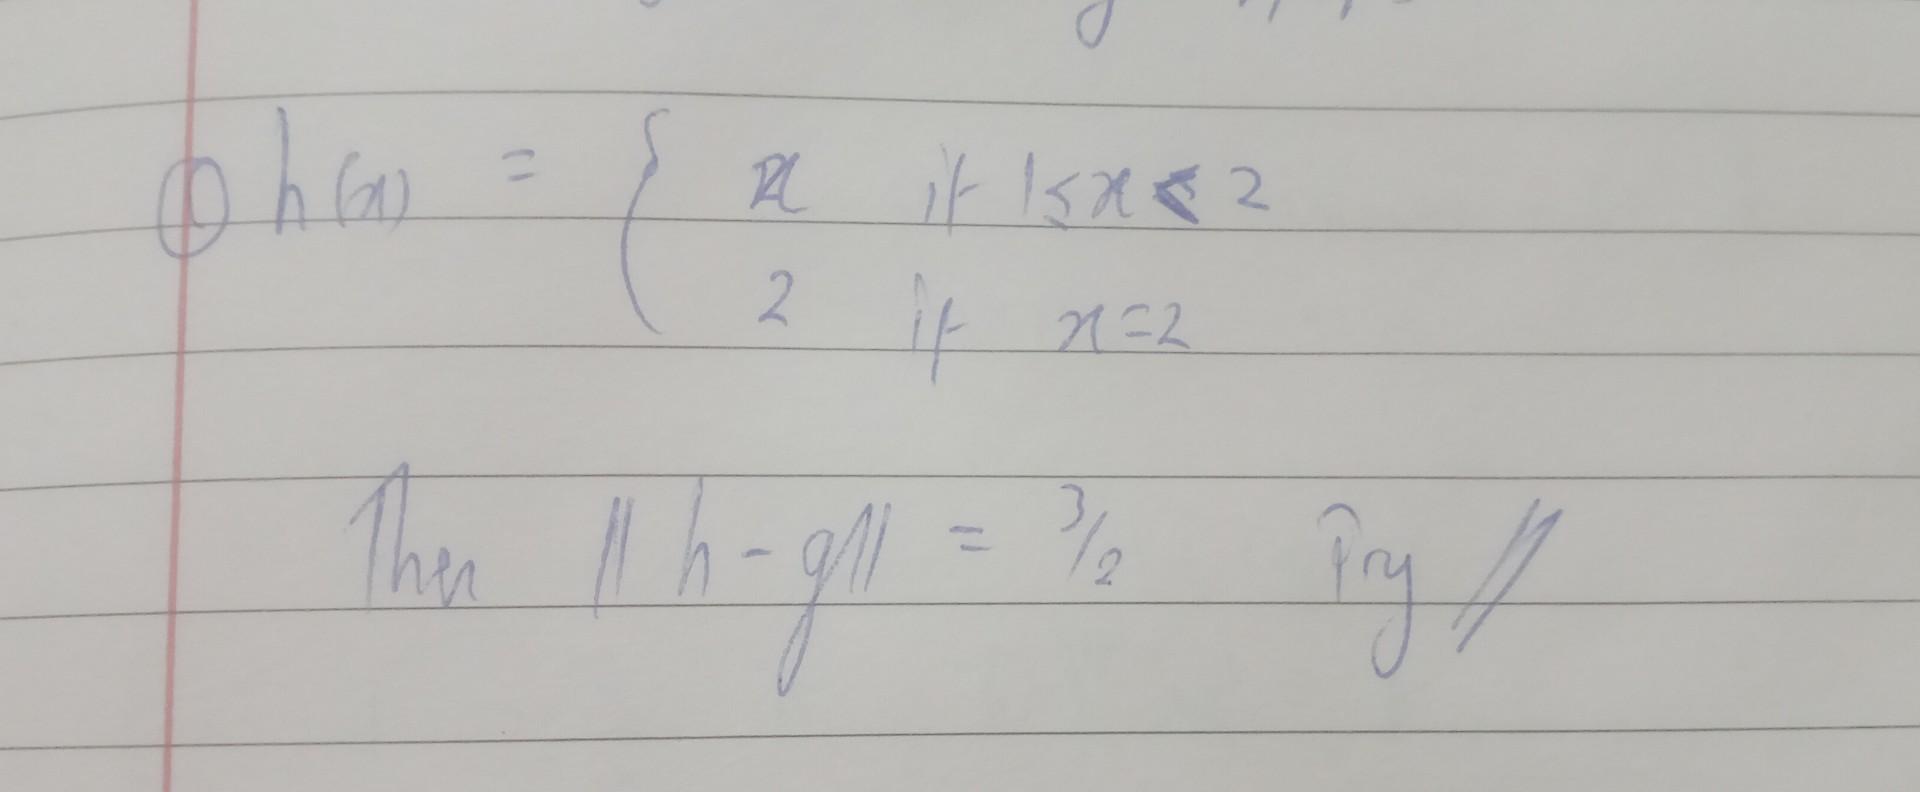 ① h(x) = { x if 1≤x<2
2 if x=2
Then || h-g|| = 3/2 Try //